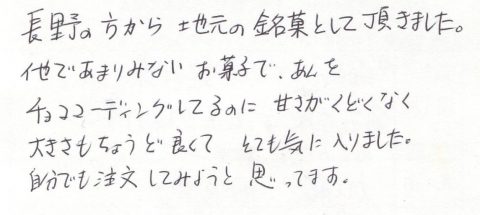 長野の方から 地元の銘菓として頂きました。
他であまりみない お菓子で、あんを
チョココーディングしてるのに 甘さがくどくなく
大きさもちょうど良くて とても気に入りました。
自分でも注文してみようと思ってます。